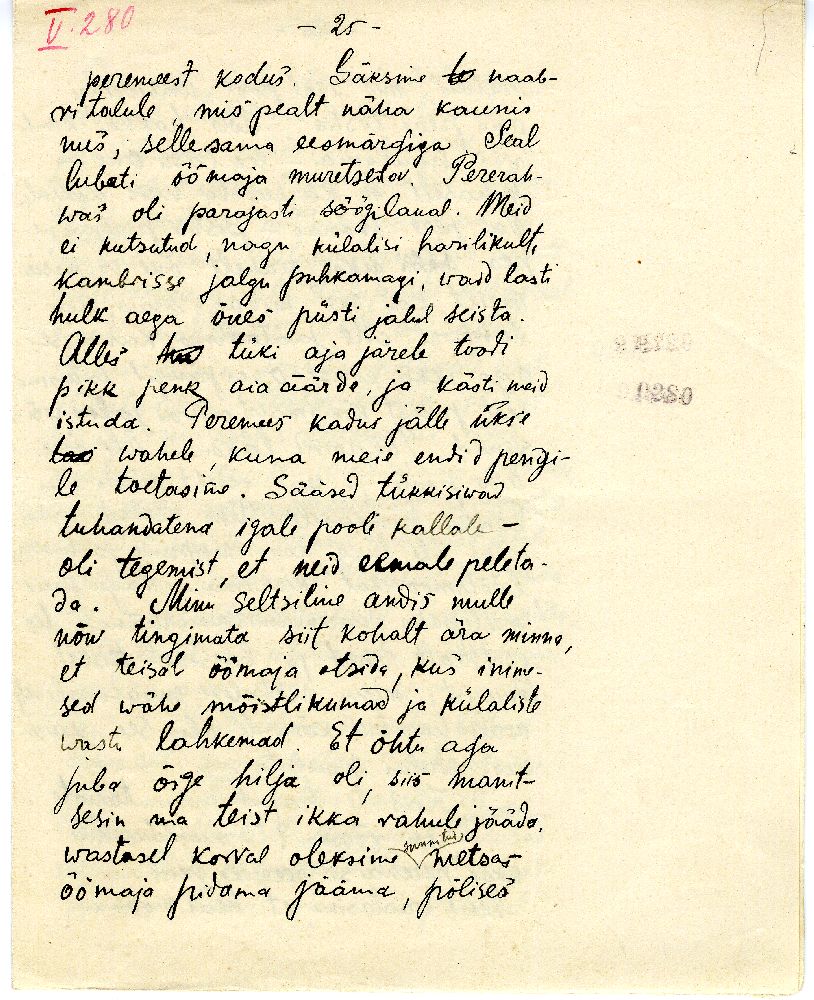 V. 280
- 25 -
peremeest kodus. Läksime naab-
ri talule, mis pealt näha kaunis
mis, sellesama eesmärgiga. Seal
lubati öömaja muretseda. Pererah-
was oli parajasti söögilaual. Meid
ei kutsutud, nagu külalisi harilikult,
kambrisse jalgu puhkamagi, waid lasti
hulk aega õues püsti jalul seista.
Alles tüki aja järele toodi
pikk penk aia äärde, ja kästi meid
istuda. Peremees kadus jälle ükse
wahele, kuna meie endid pengi-
le toetasime. Sääsed tükkisiwad
tuhandatena igale poole kallale -
oli tegemist, et neid eemale peleta-
da. Minu seltsiline andis mulle
nõw tingimata siit kohalt ära minna,
et teisal öömaja otsida, kus inime-
sed wähe mõistlikumad ja külaliste
wastu lahkemad. Et õhtu aga
juba õige hilja oli, siis manit-
sesin ma teist ikka rahule jääda,
wastasel korral oleksime sunnitud metsas
öömaja pidama jääma, põlises